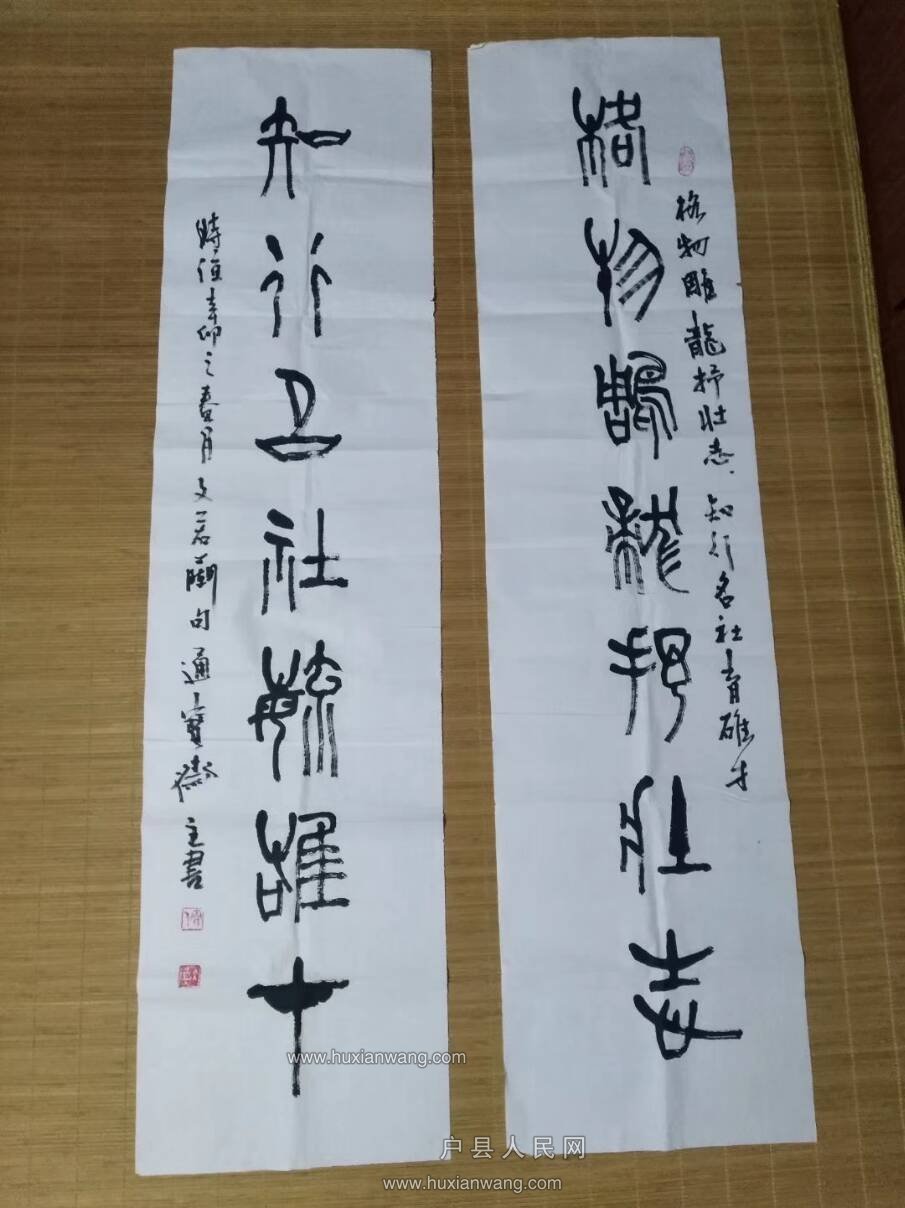 格物雕龙抒壮志
格物雕龍抒壯志、知行名社育碓才
知行名社毓碓才
時值辛卯之春月文若蘭句通寶齋主書
www.huxianwang.com
户县人民网
www.huxianwang.com